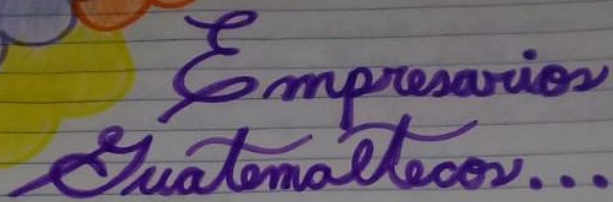 Empresarios
Guatemaltecos...